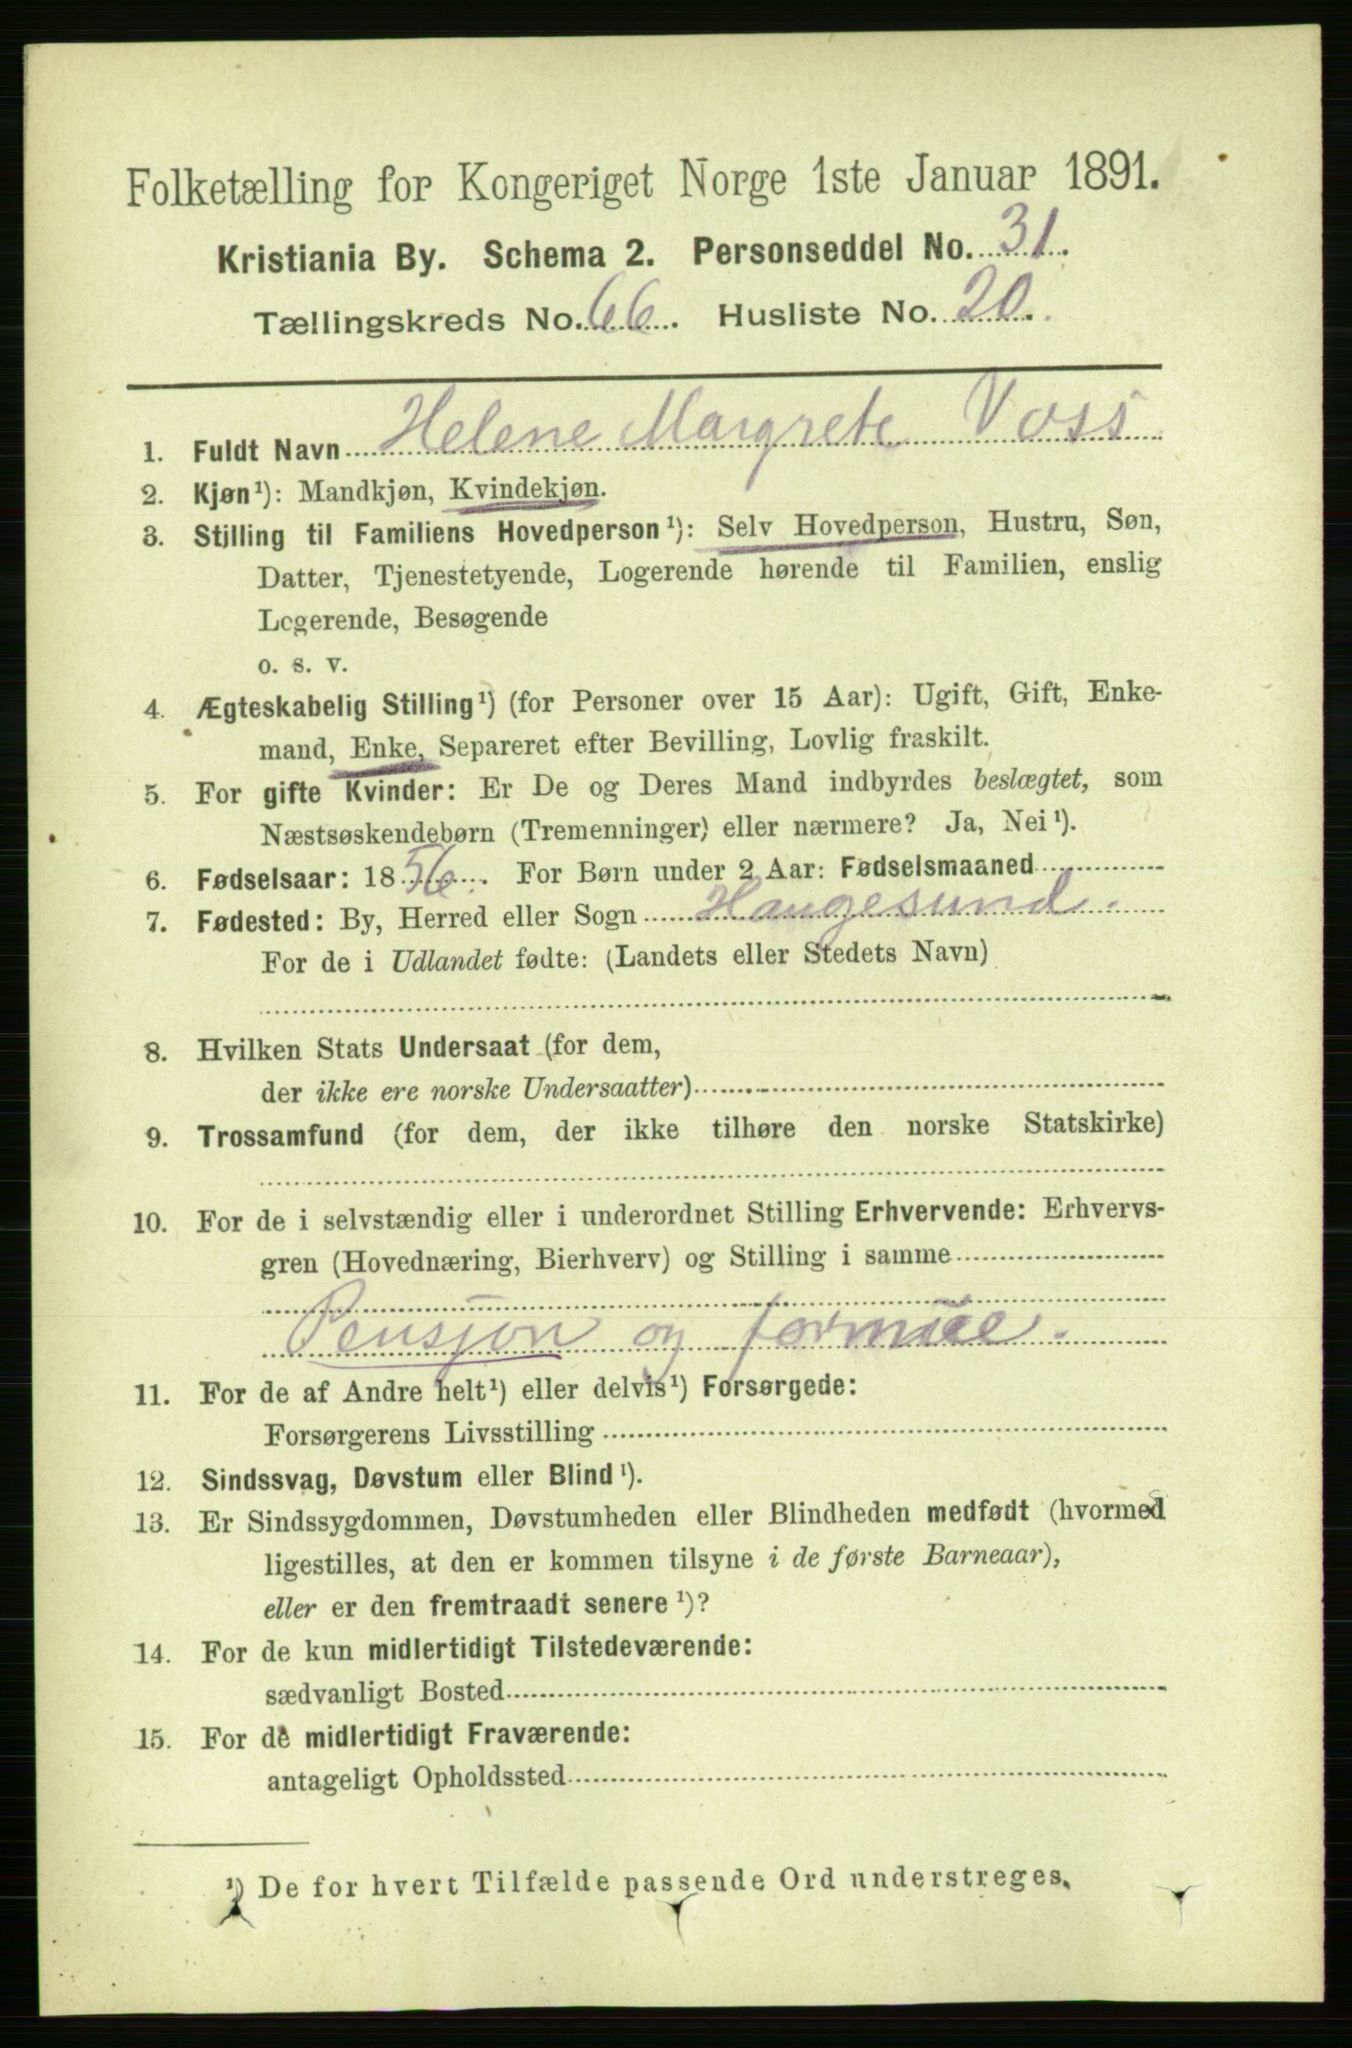 Folketælling for Kongeriget Norge 1ste Januar 1891.
Kristiania By. Schema 2. Personseddel No. 31.
Tællingskreds No. 66. Husliste No. 20.
1. Fuldt Navn Helene Margrete Voss
2. Kjøn¹): Mandkjøn, Kvindekjøn.
3. Stilling til Familiens Hovedperson¹): Selv Hovedperson, Hustru, Søn,
Datter, Tjenestetyende, Logerende hørende til Familien, enslig
Logerende, Besøgende
o. s. v.
4. Ægteskabelig Stilling¹) (for Personer over 15 Aar): Ugift, Gift, Enke-
mand, Enke, Separeret efter Bevilling, Lovlig fraskilt.
5. For gifte Kvinder: Er De og Deres Mand indbyrdes beslægtet, som
Næstsøskendebørn (Tremenninger) eller nærmere? Ja, Nei¹).
6. Fødselsaar: 1856. For Børn under 2 Aar: Fødselsmaaned
7. Fødested: By, Herred eller Sogn Haugesund.
For de i Udlandet fødte: (Landets eller Stedets Navn)
8. Hvilken Stats Undersaat (for dem,
der ikke ere norske Undersaatter)
9. Trossamfund (for dem, der ikke tilhøre den norske Statskirke)
10. For de i selvstændig eller i underordnet Stilling Erhvervende: Erhvervs-
gren (Hovednæring, Bierhverv) og Stilling i samme
Pensjon og formue.
11. For de af Andre helt¹) eller delvis¹) Forsørgede:
Forsørgerens Livsstilling
12. Sindssvag, Døvstum eller Blind¹).
13. Er Sindssygdommen, Døvstumheden eller Blindheden medfødt (hvormed
ligestilles, at den er kommen tilsyne i de første Barneaar),
eller er den fremtraadt senere¹)?
14. For de kun midlertidigt Tilstedeværende:
sædvanligt Bosted
15. For de midlertidigt Fraværende:
antageligt Opholdssted
¹) De for hvert Tilfælde passende Ord understreges.